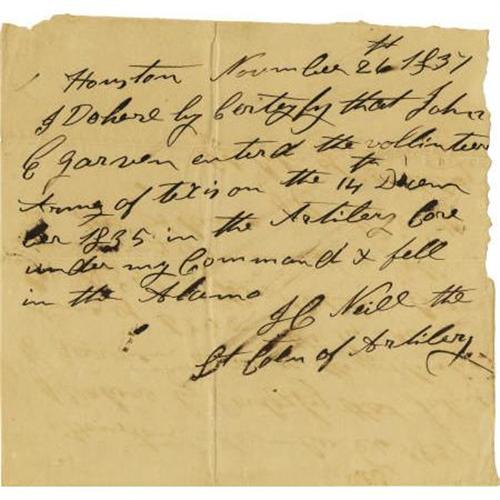 Houston November 26th 1837
I Dohere by Certefy that John
C Garven enterd the vollinteer
Army of texis on the 14th Decem
ber 1835 in the Artilery Core
under my Command & fell
in the Alamo
J C Neill the
Lt Coln of Artilery